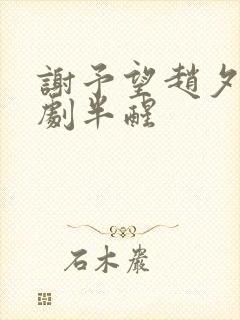 謝予望趙夕
劇半醒
石木嚴